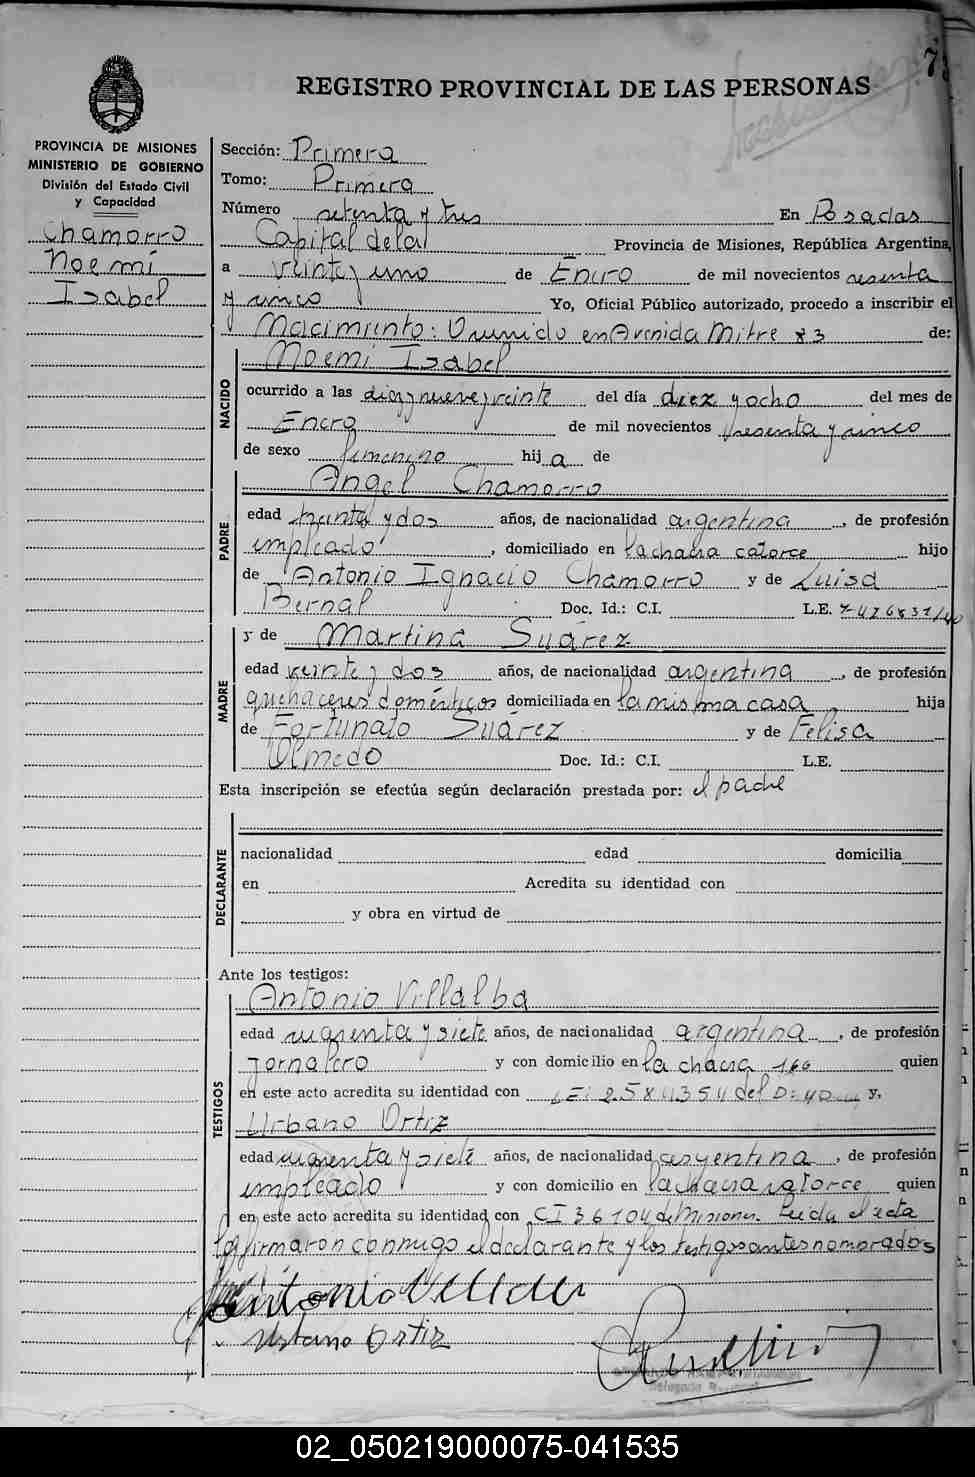 REGISTRO PROVINCIAL DE LAS PERSONAS
PROVINCIA DE MISIONES
MINISTERIO DE GOBIERNO
División del Estado Civil
y Capacidad
Chamorro
Noemí
Isabel
Sección: Primera
Tomo: Primera
Número setenta y tres En Posadas
Capital de la Provincia de Misiones, República Argentina,
a veinte y uno de Enero de mil novecientos sesenta
y cinco Yo, Oficial Público autorizado, procedo a inscribir el
Nacimiento: Ocurrido en Avenida Mitre 83 de:
Noemí Isabel
NACIDO
ocurrido a las diez y nueve y veinte del día diez y ocho del mes de
Enero de mil novecientos sesenta y cinco
de sexo femenino hija de
Angel Chamorro
PADRE
edad treinta y dos años, de nacionalidad argentina, de profesión
empleado, domiciliado en la chacra catorce hijo
de Antonio Ignacio Chamorro y de Luisa
Bernal Doc. Id.: C.I. L.E.
y de Martina Suárez
MADRE
edad veinte y dos años, de nacionalidad argentina, de profesión
quehaceres domésticos domiciliada en la misma casa hija
de Fortunato Suárez y de Felisa
Olmedo Doc. Id.: C.I. L.E.
Esta inscripción se efectúa según declaración prestada por: el padre
DECLARANTE
nacionalidad edad domicilia
en Acredita su identidad con
y obra en virtud de
Ante los testigos:
Antonio Villalba
TESTIGOS
edad cuarenta y siete años, de nacionalidad argentina, de profesión
jornalero y con domicilio en la chacra 166 quien
en este acto acredita su identidad con y,
Urbano Ortiz
edad cuarenta y siete años, de nacionalidad argentina, de profesión
empleado y con domicilio en la chacra catorce quien
en este acto acredita su identidad con CI 36104 de Misiones. Leída el acta
la firmaron conmigo el declarante y los testigos antes nombrados
Antonio
Urbano Ortiz
02_050219000075-041535